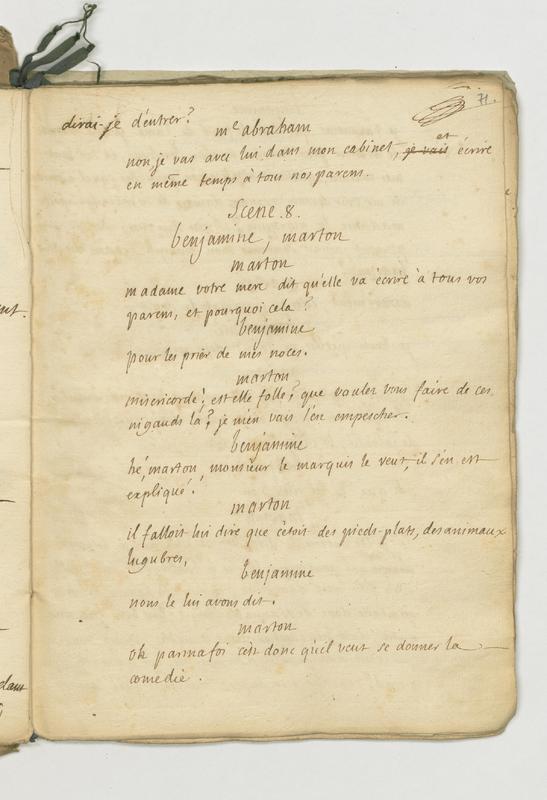 71.
dirai-je d'entrer?
me abraham
non je vas avec lui dans mon cabinet, je vais et écrire
en même temps à tous nos parens.
Scene .8.
benjamine, marton
marton
madame votre mere dit qu'elle va écrire à tous vos
parens, et pourquoi cela?
benjamine
pour les prier de mes noces.
marton
misericorde! est elle folle? que voulez vous faire de ces
nigauds là? je m'en vais l'en empescher.
benjamine
hé, marton, monsieur le marquis le veut, il s'en est
expliqué.
marton
il falloit lui dire que c'étoit des pieds-plats, des animaux
lugubres,
benjamine
nous le lui avons dit.
marton
oh parmafoi c'est donc qu'il veut se donner la
comedie.